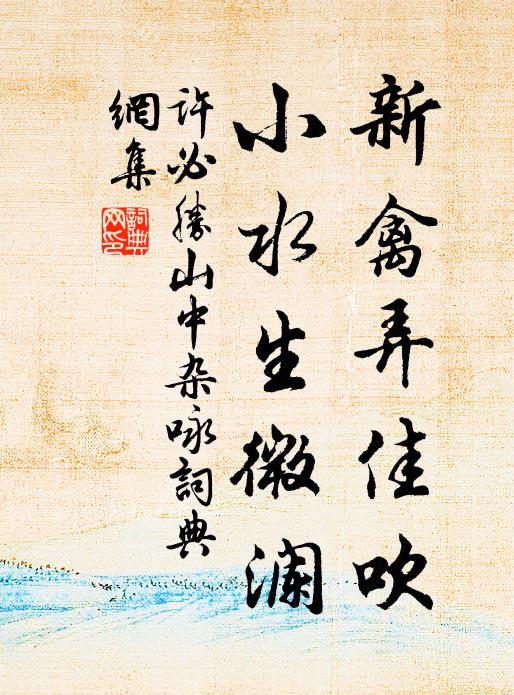 新禽弄佳吹
小水生微澜
许必胜山中杂咏詞典
網集
詞典
网印